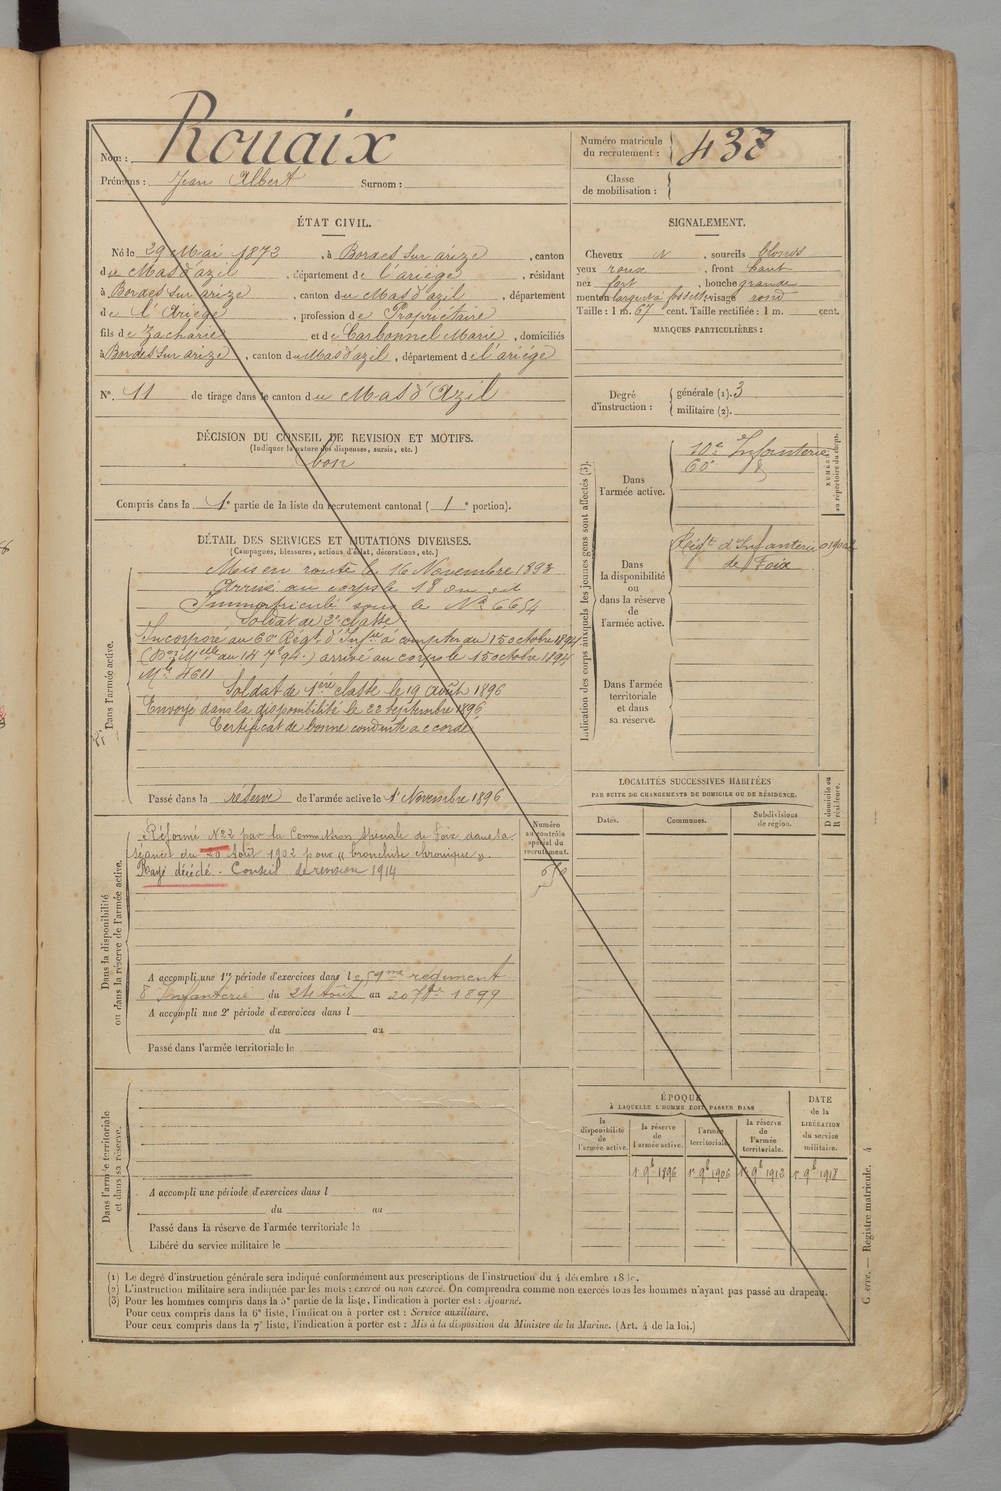 Nom : Rouaix
Prénoms : Jean Albert Surnom :
Numéro matricule du recrutement : 437
Classe de mobilisation :
ÉTAT CIVIL.
Né le 29 Mai 1872, à Bordes sur arize, canton
du Mas d'azil, département de l'ariège, résidant
à Bordes sur arize, canton du Mas d'azil, département
de l'Ariège, profession de Propriétaire
fils de Zacharie et de Carbonnel Marie, domiciliés
à Bordes sur arize, canton du Mas d'azil, département de l'ariège
N°. 11 de tirage dans le canton du Mas d'Azil
SIGNALEMENT.
Cheveux N, sourcils blonds
yeux roux, front haut
nez fort, bouche grande
menton large à fossette visage rond
Taille : 1 m. 67 cent. Taille rectifiée : 1 m. cent.
MARQUES PARTICULIÈRES :
Degré d'instruction : générale (1). 3
militaire (2).
DÉCISION DU CONSEIL DE REVISION ET MOTIFS.
(Indiquer la nature des dispenses, sursis, etc.)
bon
Compris dans la 1e partie de la liste du recrutement cantonal ( 1 e portion).
DÉTAIL DES SERVICES ET MUTATIONS DIVERSES.
(Campagnes, blessures, actions d'éclat, décorations, etc.)
Dans l'armée active.
Mis en route le 16 Novembre 1893
Arrivé au corps le 18 du dit
Immatriculé sous le No 6654
Soldat de 2e classe.
Incorporé au 60e Régt. d'Inftie à compter du 15 octobre 1894
arrivé au corps le 15 octobre 1894
Mle 4611
Soldat de 1ère classe le 19 août 1896
Envoyé dans la disponibilité le 22 septembre 1896
Certificat de bonne conduite accordé
Passé dans la réserve de l'armée active le 1r Novembre 1896
Indication des corps auxquels les jeunes gens sont affectés (3).
NUMÉROS au répertoire du corps.
Dans l'armée active.
10e Infanterie
60e
Dans la disponibilité ou dans la réserve de l'armée active.
Régt d'Infanterie
de Foix
Dans l'armée territoriale et dans sa réserve.
LOCALITÉS SUCCESSIVES HABITÉES
PAR SUITE DE CHANGEMENTS DE DOMICILE OU DE RÉSIDENCE.
D domicile ou R résidence.
Dates. Communes. Subdivisions de région.
Numéro au contrôle spécial du recrutement.
Dans la disponibilité ou dans la réserve de l'armée active.
Réformé No2 par la Commission spéciale de Foix dans la
séance du 20 Août 1902 pour « bronchite chronique ».
Rayé décédé. Conseil de revision 1914
A accompli une 1re période d'exercices dans le 59me régiment
d'Infanterie du 24 Août au 20 7bre 1899
A accompli une 2e période d'exercices dans l
du au
Passé dans l'armée territoriale le
Dans l'armée territoriale et dans sa réserve.
A accompli une période d'exercices dans l
du au
Passé dans la réserve de l'armée territoriale le
Libéré du service militaire le
ÉPOQUE
À LAQUELLE L'HOMME DOIT PASSER DANS
la disponibilité de l'armée active.
la réserve de l'armée active.
l'armée territoriale.
la réserve de l'armée territoriale.
DATE de la LIBÉRATION du service militaire.
1r 9b 1896 1r 9b 1906 1r 9b 1912 1r 9b 1918
(1) Le degré d'instruction générale sera indiqué conformément aux prescriptions de l'instruction du 4 décembre
(2) L'instruction militaire sera indiquée par les mots : exercé ou non exercé. On comprendra comme non exercés tous les hommes n'ayant pas passé au drapeau.
(3) Pour les hommes compris dans la 5e partie de la liste, l'indication à porter est : Ajourné.
Pour ceux compris dans la 6e liste, l'indication à porter est : Service auxiliaire.
Pour ceux compris dans la 7e liste, l'indication à porter est : Mis à la disposition du Ministre de la Marine. (Art. 4 de la loi.)
Guerre. — Registre matricule. 4